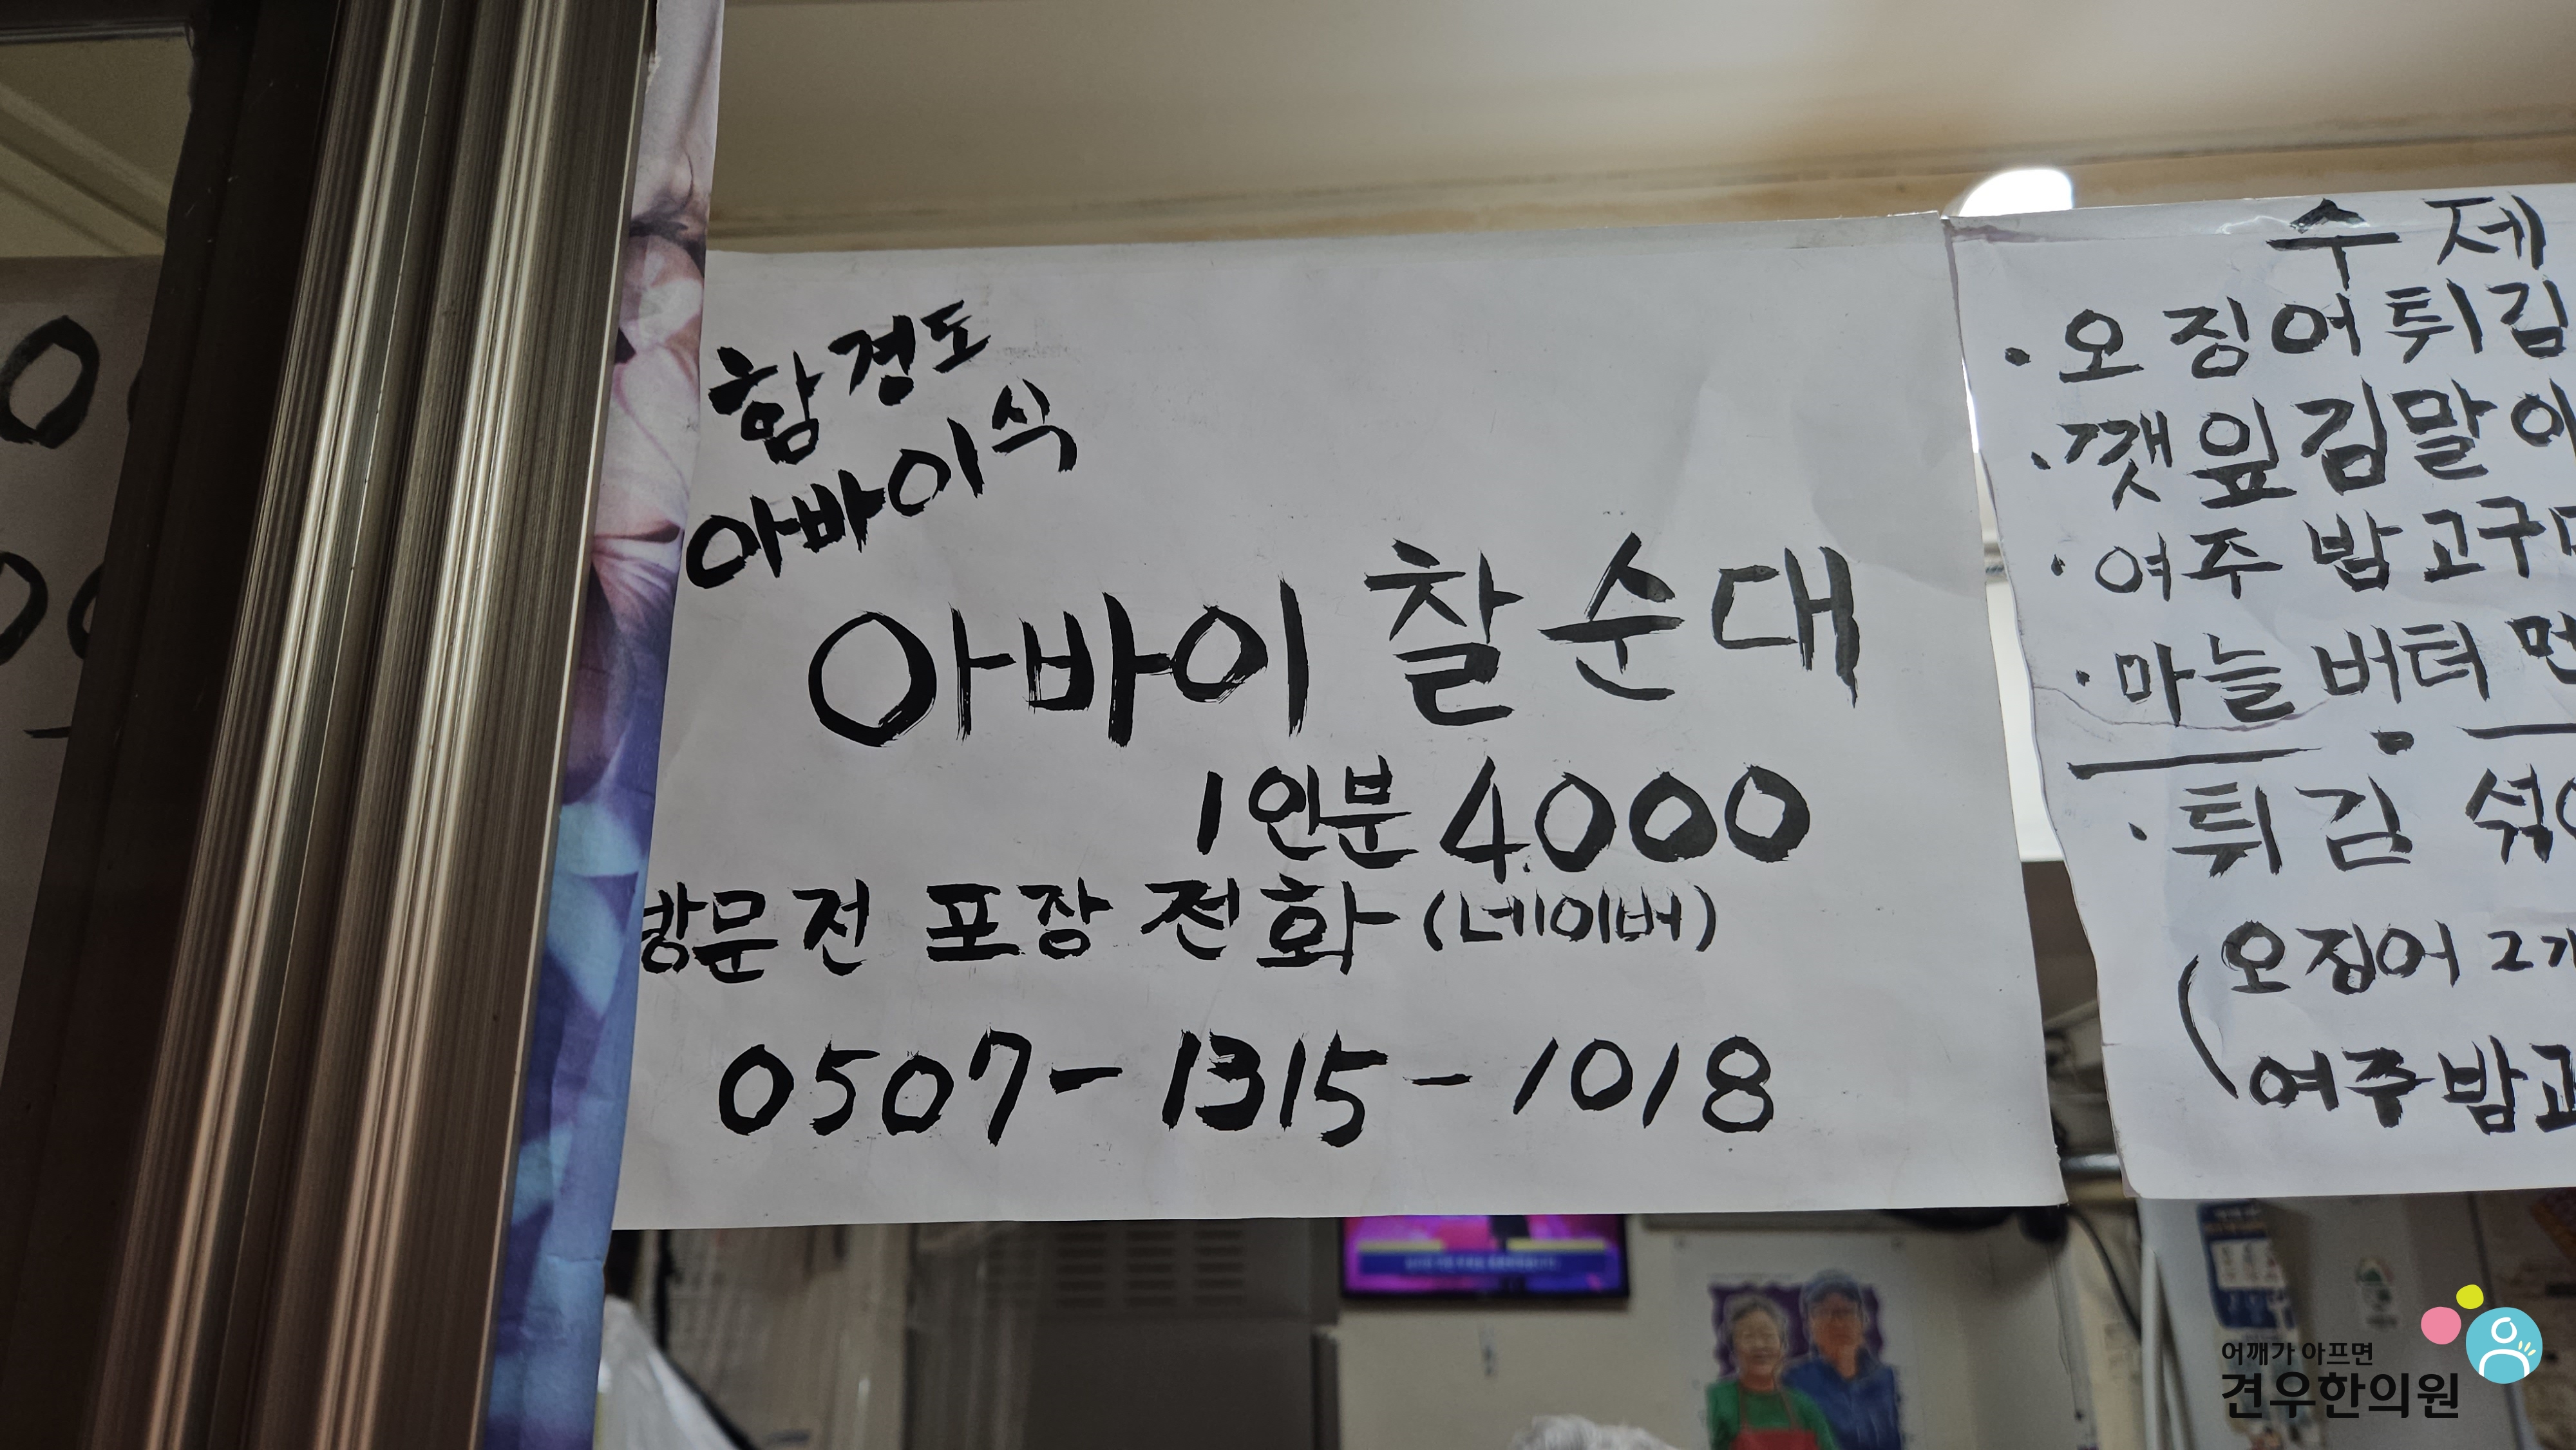 함경도
아바이식
아바이 찰순대
1인분 4.000
방문전 포장 전화 (네이버)
0507-1315-1018
수제
· 오징어튀김
· 깻잎김말이
· 여주 밤고구
· 마늘 버터
· 튀김
(오징어 2개
여주밤고
어깨가 아프면
견우한의원